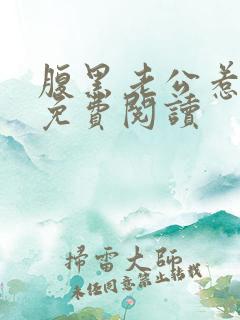 腹黑老公惹
免費閱讀
掃雷大師
未经同意禁止转载